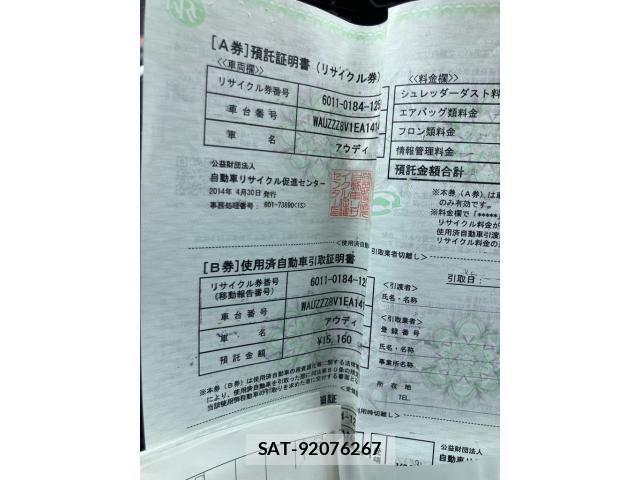 [A券]預託証明書(リサイクル券)
<<車両欄>>
リサイクル券番号 6011-0184-125
車台番号 WAUZZZ8V1EA141
車名 アウディ
公益財団法人
自動車リサイクル促進センター
2014年 4月30日 発行
事務処理番号: 601-73890<1S>
<<料金欄>>
シュレッダーダスト料
エアバッグ類料金
フロン類料金
情報管理料金
預託金額合計
※本券(A券)は車
のみ有効です。
※料金欄で「*****」
リサイクル料金が
使用済自動車引渡
リサイクル料金の
<使用済自動
引取業者切離し>
[B券]使用済自動車引取証明書
リサイクル券番号
(移動報告番号) 6011-0184-12
車台番号 WAUZZZ8V1EA14
車名 アウディ
預託金額 ¥15,160
引取日:
<引渡者>
氏名・名称
<引取業者>
登録番号
氏名・名称
事業所名称
所在地
TEL
※本券(B券)は使用済自動車の再資源化等に関する法律
により、使用済自動車を引取った際に同法第80条の規定
公益財団法人
自動車リ
SAT-92076267